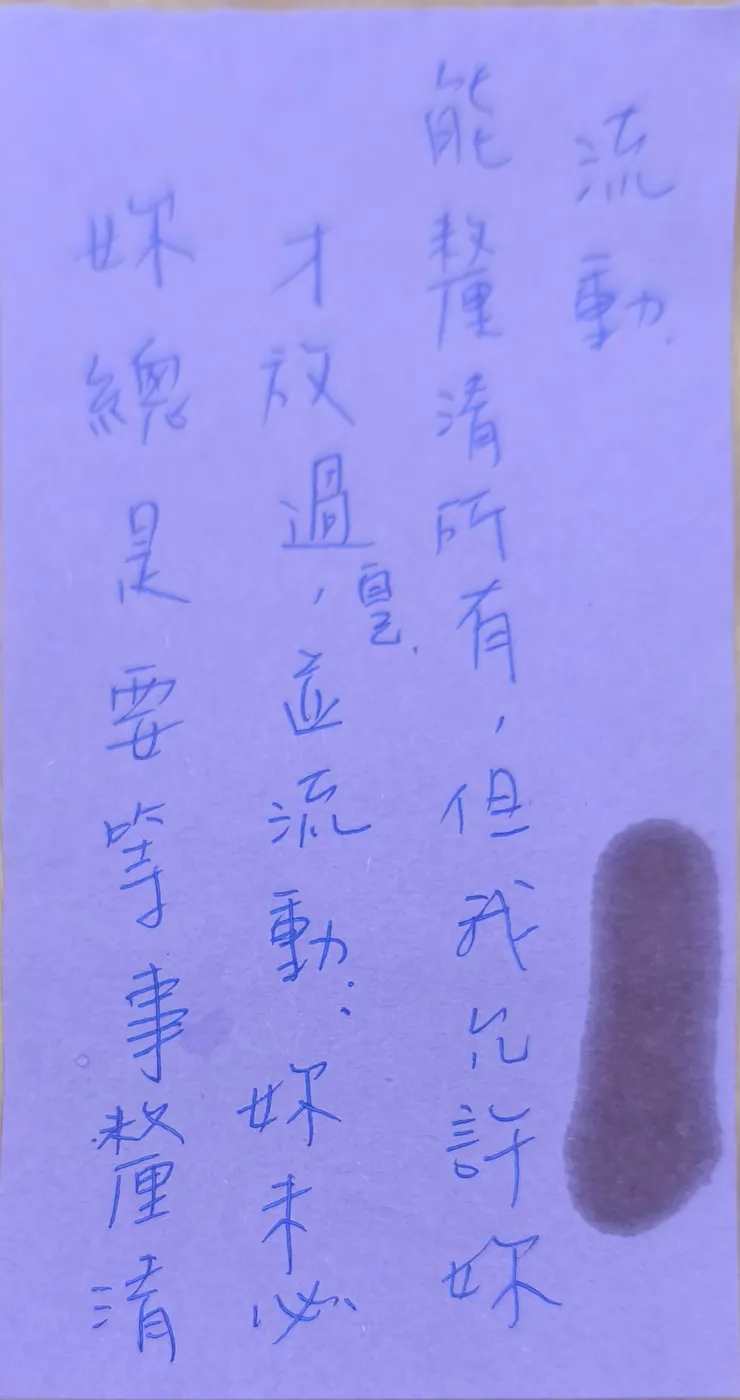 妳總是要等事釐清
才放過自己，並流動：妳未必
能釐清所有，但我允許妳
流動.